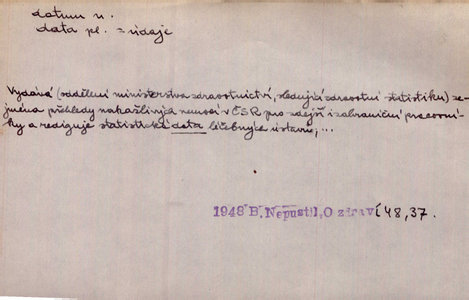 datum n.
data pl. = údaje
Vydává (oddělení ministerstva zdravotnictví, sledující zdravotní statistiku) ze-
jména přehledy nakažlivých nemocí v ČSR pro zdejší i zahraniční pracovní-
ky a rediguje statistická data léčebných ústavů, ...
1948 B. Nepustil, O zdraví 48, 37.